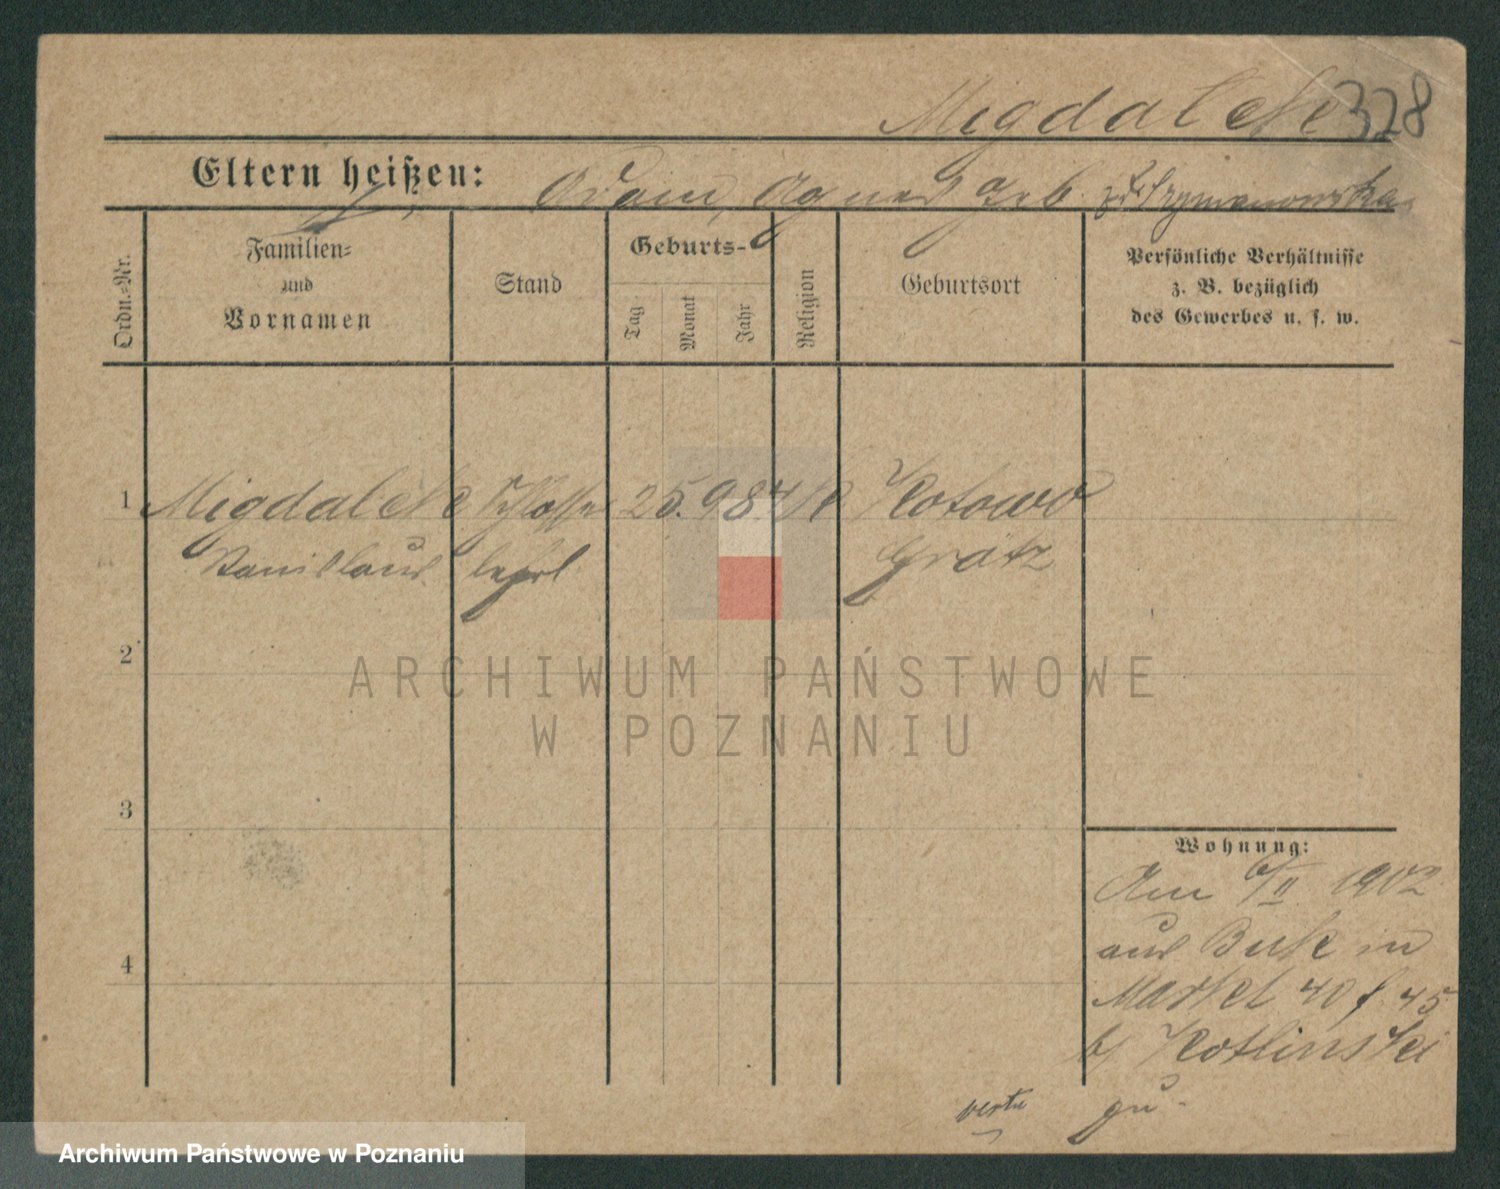 Migdalek 328
Eltern heißen: Adam, Agnes geb. Szymanowska
Ordn.-Nr.
Familien-
und
Vornamen
Stand
Geburts-
Tag
Monat
Jahr
Religion
Geburtsort
Persönliche Verhältnisse
z. B. bezüglich
des Gewerbes u. s. w.
1 Migdalek Schlosser 25. 9 84 k Kotowo
Stanislaus lehrl Grätz
2
3
4
Wohnung:
Am 6/II 1902
aus Buk in
Markt 40 45
b/ Kotlinski
zu.
vertu
ARCHIWUM PAŃSTWOWE
W POZNANIU
Archiwum Państwowe w Poznaniu